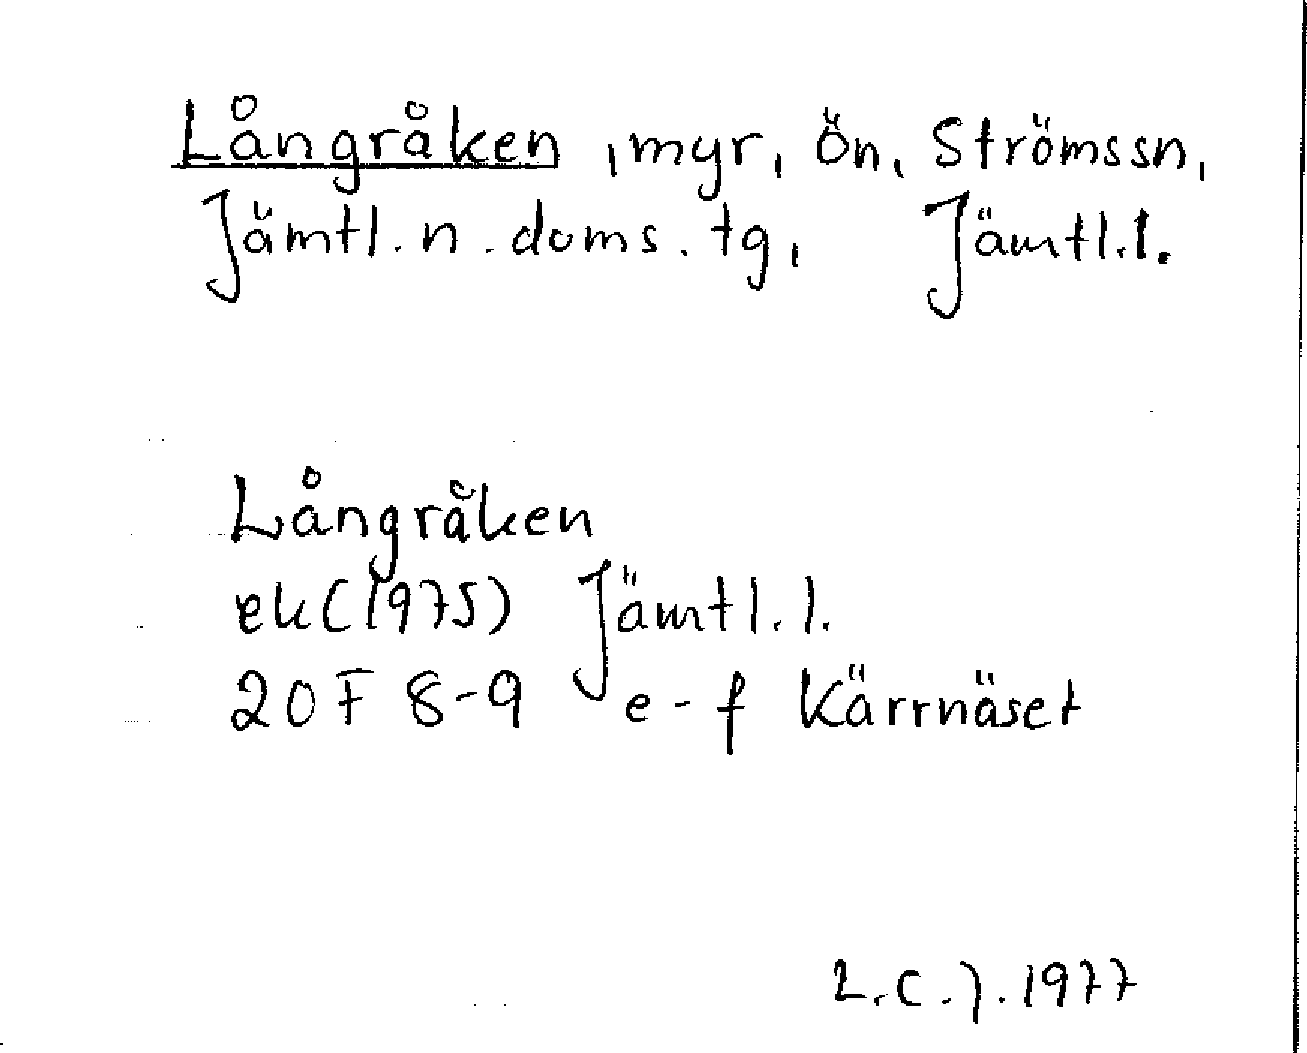 Långråken, myr, Ön, Strömssn,
Jämtl. n. doms. tg, Jämtl.l.
Långråken
ek (1975) Jämtl. l.
20 F 8-9 e-f Kärrnäset
L.C.J. 1977